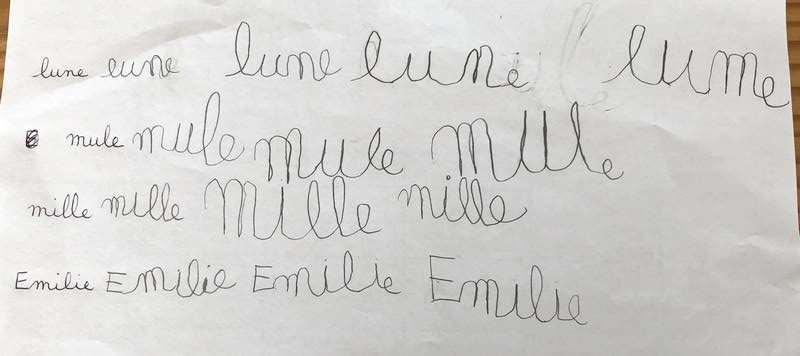 lune lune lune lune lume
mule mule mule mule
mille mille mille mille
Emilie Emilie Emilie Emilie